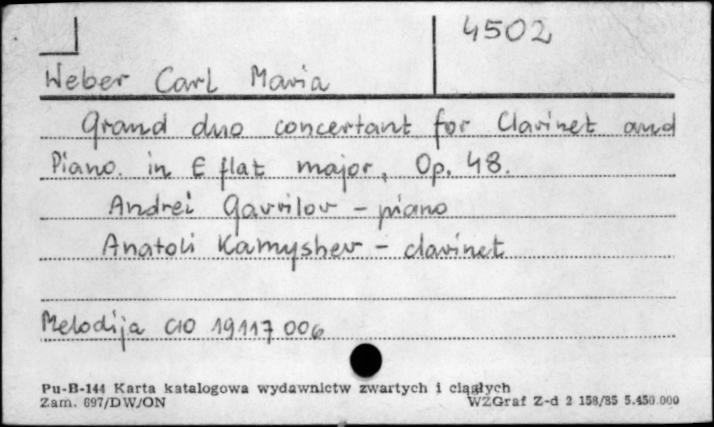 4502
Weber Carl Maria
Grand duo concertant for Clarinet and
Piano. in E flat major, Op. 48.
Andrei Gavrilov - piano
Anatoli Kamyshev - clarinet
Melodija C10 19117 006
Pu-B-144 Karta katalogowa wydawnictw zwartych i ciągłych
Zam. 697/DW/ON WZGraf Z-d 2 158/85 5.450.000